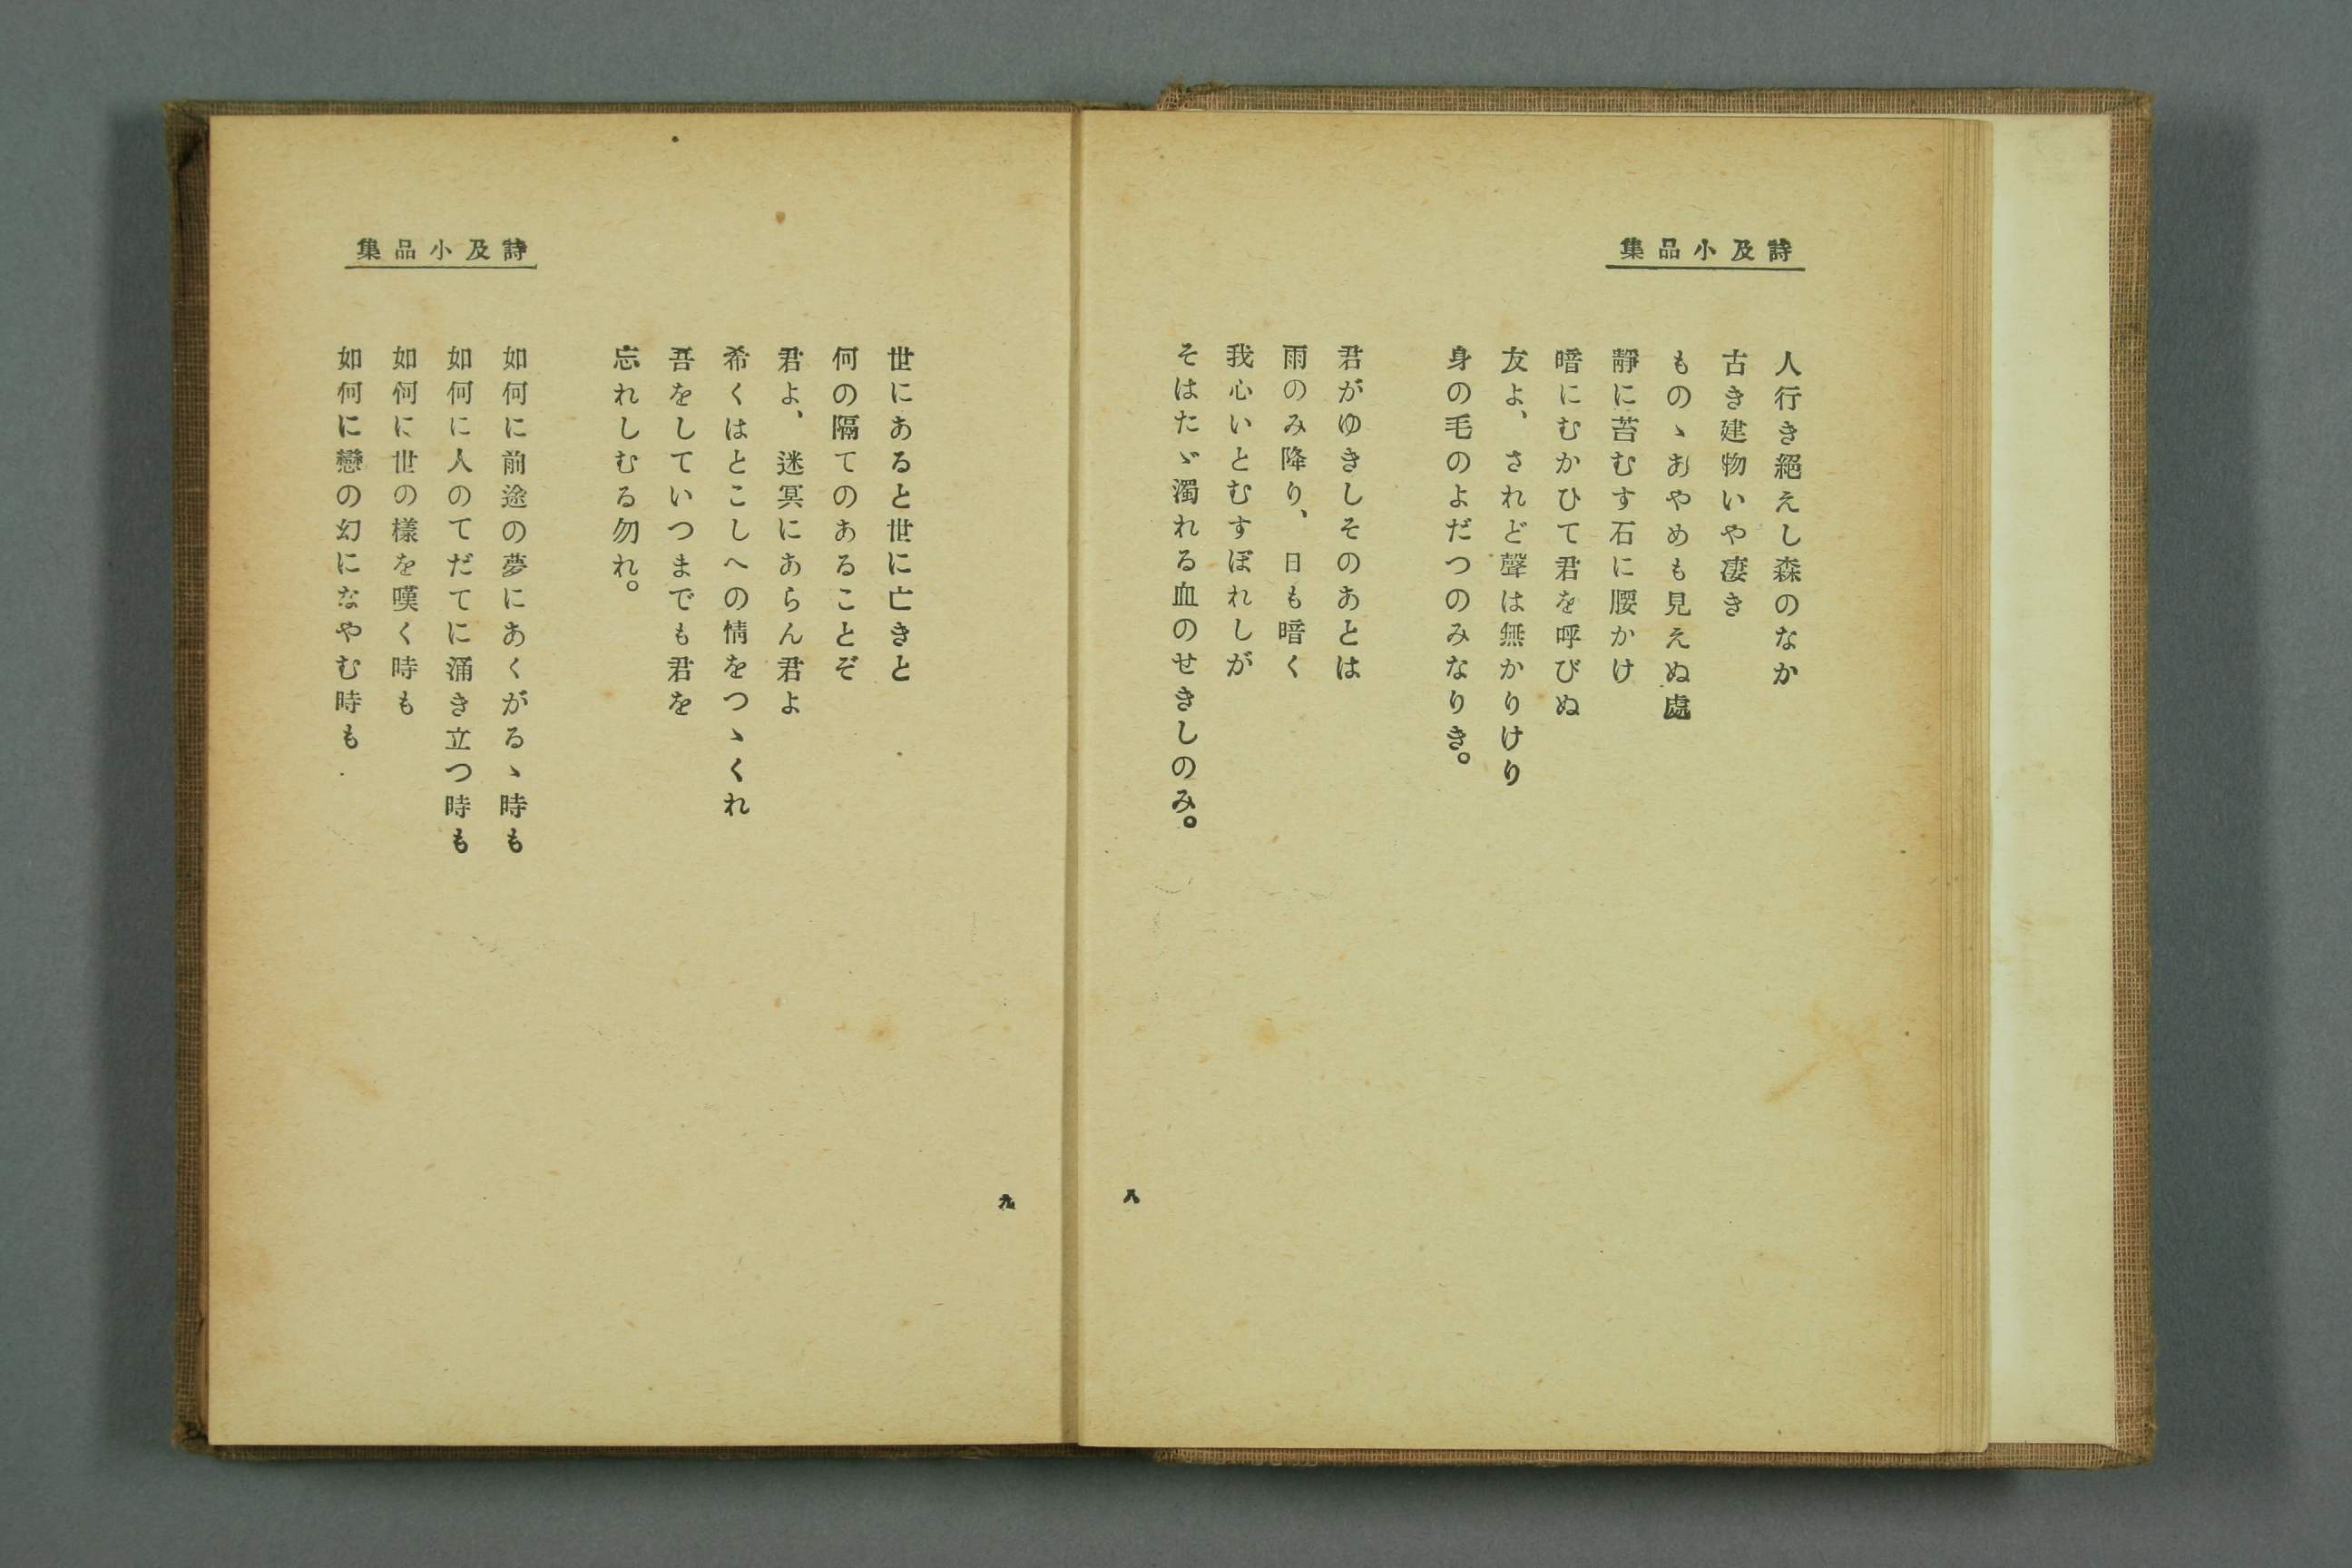 詩及小品集
人行き絕えし森のなか
古き建物いや凄き
ものゝあやめも見えぬ處
靜に苔むす石に腰かけ
暗にむかひて君を呼びぬ
友よ、されど聲は無かりけり
身の毛のよだつのみなりき。
君がゆきしそのあとは
雨のみ降り、日も暗く
我心いとむすぼれしが
そはたゞ濁れる血のせきしのみ。
八
詩及小品集
世にあると世に亡きと
何の隔てのあることぞ
君よ、迷冥にあらん君よ
希くはとこしへの情をつゝくれ
吾をしていつまでも君を
忘れしむる勿れ。
如何に前途の夢にあくがるゝ時も
如何に人のてだてに涌き立つ時も
如何に世の樣を嘆く時も
如何に戀の幻になやむ時も
九